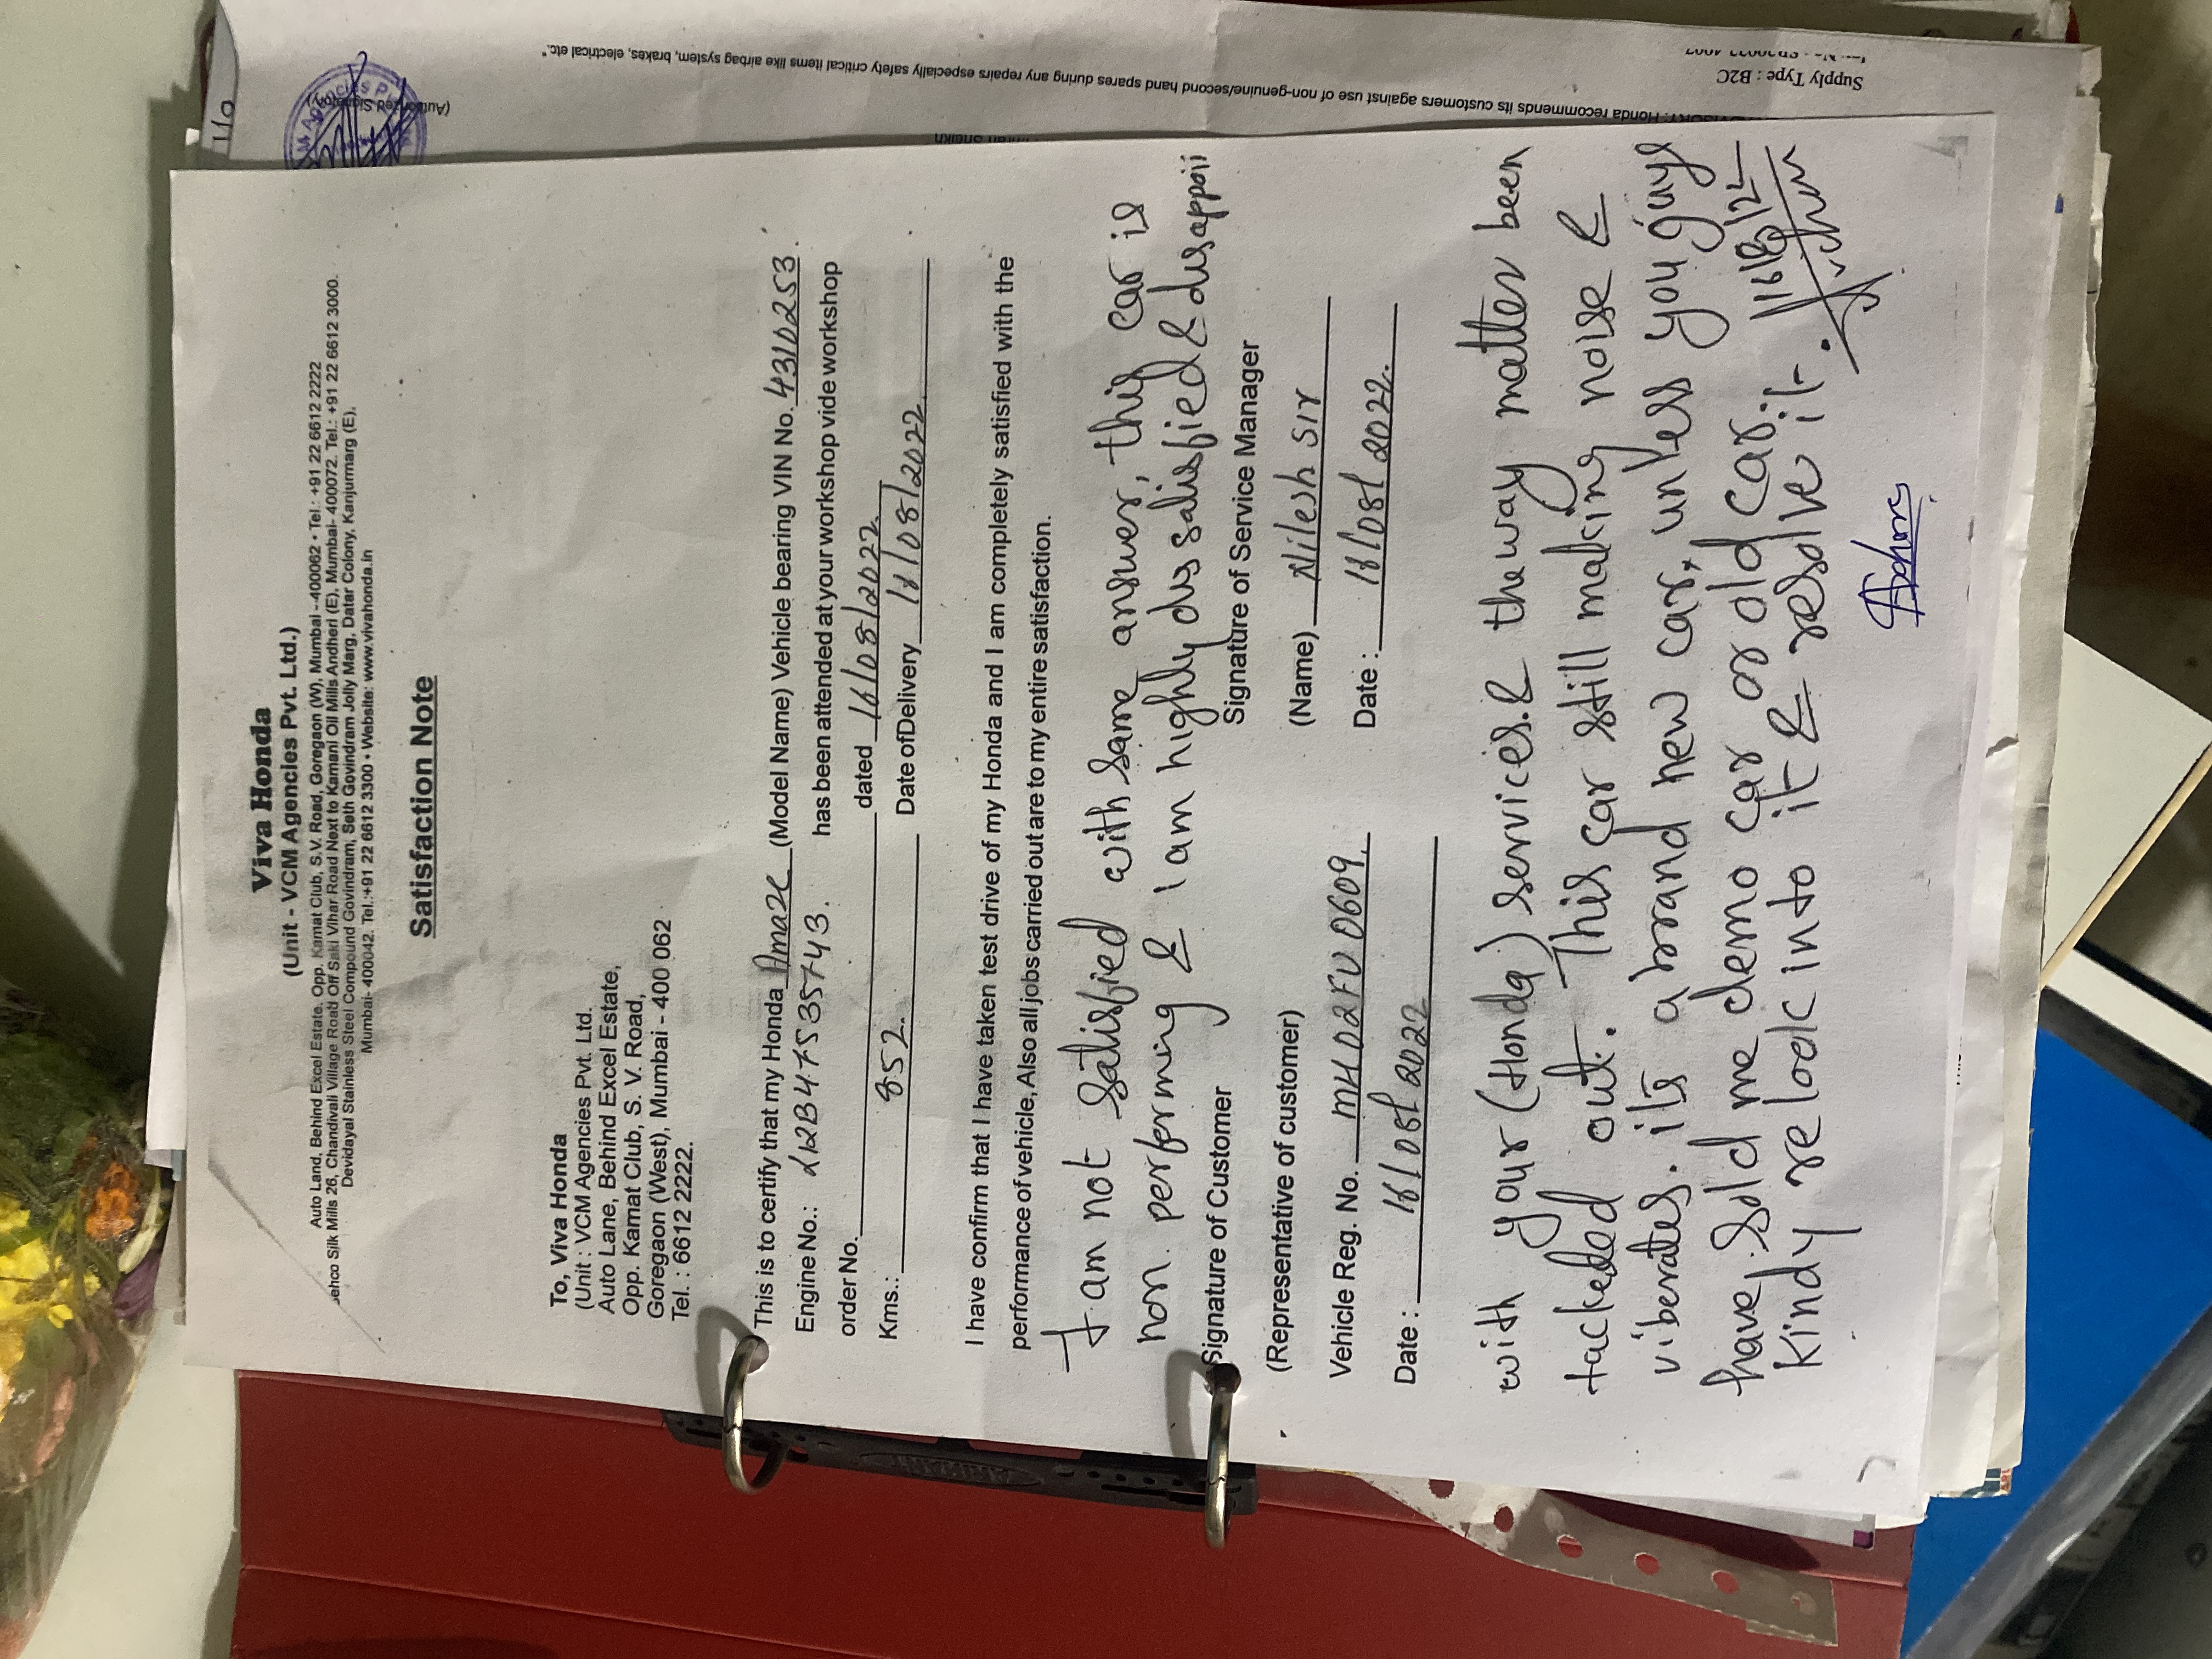 Viva Honda
(Unit - VCM Agencies Pvt. Ltd.)
Auto Land, Behind Excel Estate, Opp. Kamat Club, S.V. Road, Goregaon (W), Mumbai - 400062 • Tel.: +91 22 6612 2222
Silk Mills 26, Chandivali Village Road Off Saki Vihar Road Next to Kamani Oil Mills Andheri (E), Mumbai- 400072. Tel.: +91 22 6612 3000.
Devidayal Stainless Steel Compound Govindram, Seth Govindram Jolly Marg, Datar Colony, Kanjurmarg (E),
Mumbai- 400042. Tel.:+91 22 6612 3300 • Website: www.vivahonda.in
Satisfaction Note
To, Viva Honda
(Unit : VCM Agencies Pvt. Ltd.
Auto Lane, Behind Excel Estate,
Opp. Kamat Club, S. V. Road,
Goregaon (West), Mumbai - 400 062
Tel. : 6612 2222.
This is to certify that my Honda Amaze (Model Name) Vehicle bearing VIN No. 4310253.
Engine No.: L12B47535743. has been attended at your workshop vide workshop
order No. dated 16/08/2022.
Kms.: 852. Date of Delivery 18/08/2022.
I have confirm that I have taken test drive of my Honda and I am completely satisfied with the
performance of vehicle, Also all jobs carried out are to my entire satisfaction.
I am not satisfied with same answer, this car is
non performing & I am highly dissatisfied & disappoii
Signature of Customer Signature of Service Manager
(Representative of customer) (Name) Nilesh Sir
Vehicle Reg. No. MH02FU0609. Date : 18/08/2022.
Date : 18/08/2022
with your (Honda) services. & the way matter been
tackeded out. This car still making noise &
viberates. its a brand new car, unless you guys
have sold me demo car or old car.
Kindy relook into it & resolve it.
Supply Type : B2C
Honda recommends its customers against use of non-genuine/second hand spares during any repairs especially safety critical items like airbag system, brakes, electrical etc."